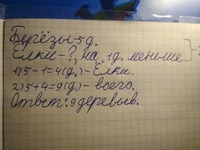 Берёзы-5д.
Ёлки-?, на 1д. меньше
1) 5-1=4(д.)-Ёлки.
2) 5+4=9(д.)-всего.
Ответ: 9 деревьев.